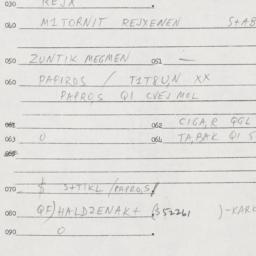 030 REJX
040 M1TORNIT REJXENEN S+AB
050 ZUNTIK MEGMEN 051 —
060 PAPIROS / T1T8UN XX
PAPRO,S Q1 CVEJ MOL
061 062 CIGA,R QGL
063 0 064 TA,BAK Q1 S
070 $ S+TIKL /PAPRO,S/
080 QF) HALDZENAK+ (352261 )-KARK
090 0